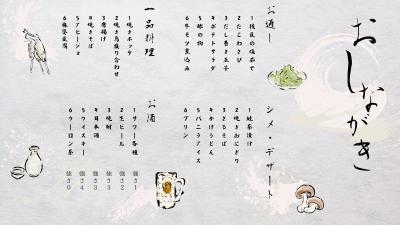 おしながき
お通し
1枝豆の塩茹で
2たこわさび
3だし巻き玉子
4ポテトサラダ
5酢の物
6牛モツ煮込み
シメ・デザート
1鮭茶漬け
2焼きおにぎり
3ざるそば
4かけうどん
5バニラアイス
6プリン
一品料理
1焼きホッケ
2焼き鳥盛り合わせ
3唐揚げ
4焼きそば
5アヒージョ
6麻婆豆腐
お酒
1サワー各種 強さ1
2生ビール 強さ2
3焼酎 強さ3
4日本酒 強さ3
5ウイスキー 強さ4
6ウーロン茶 強さ0